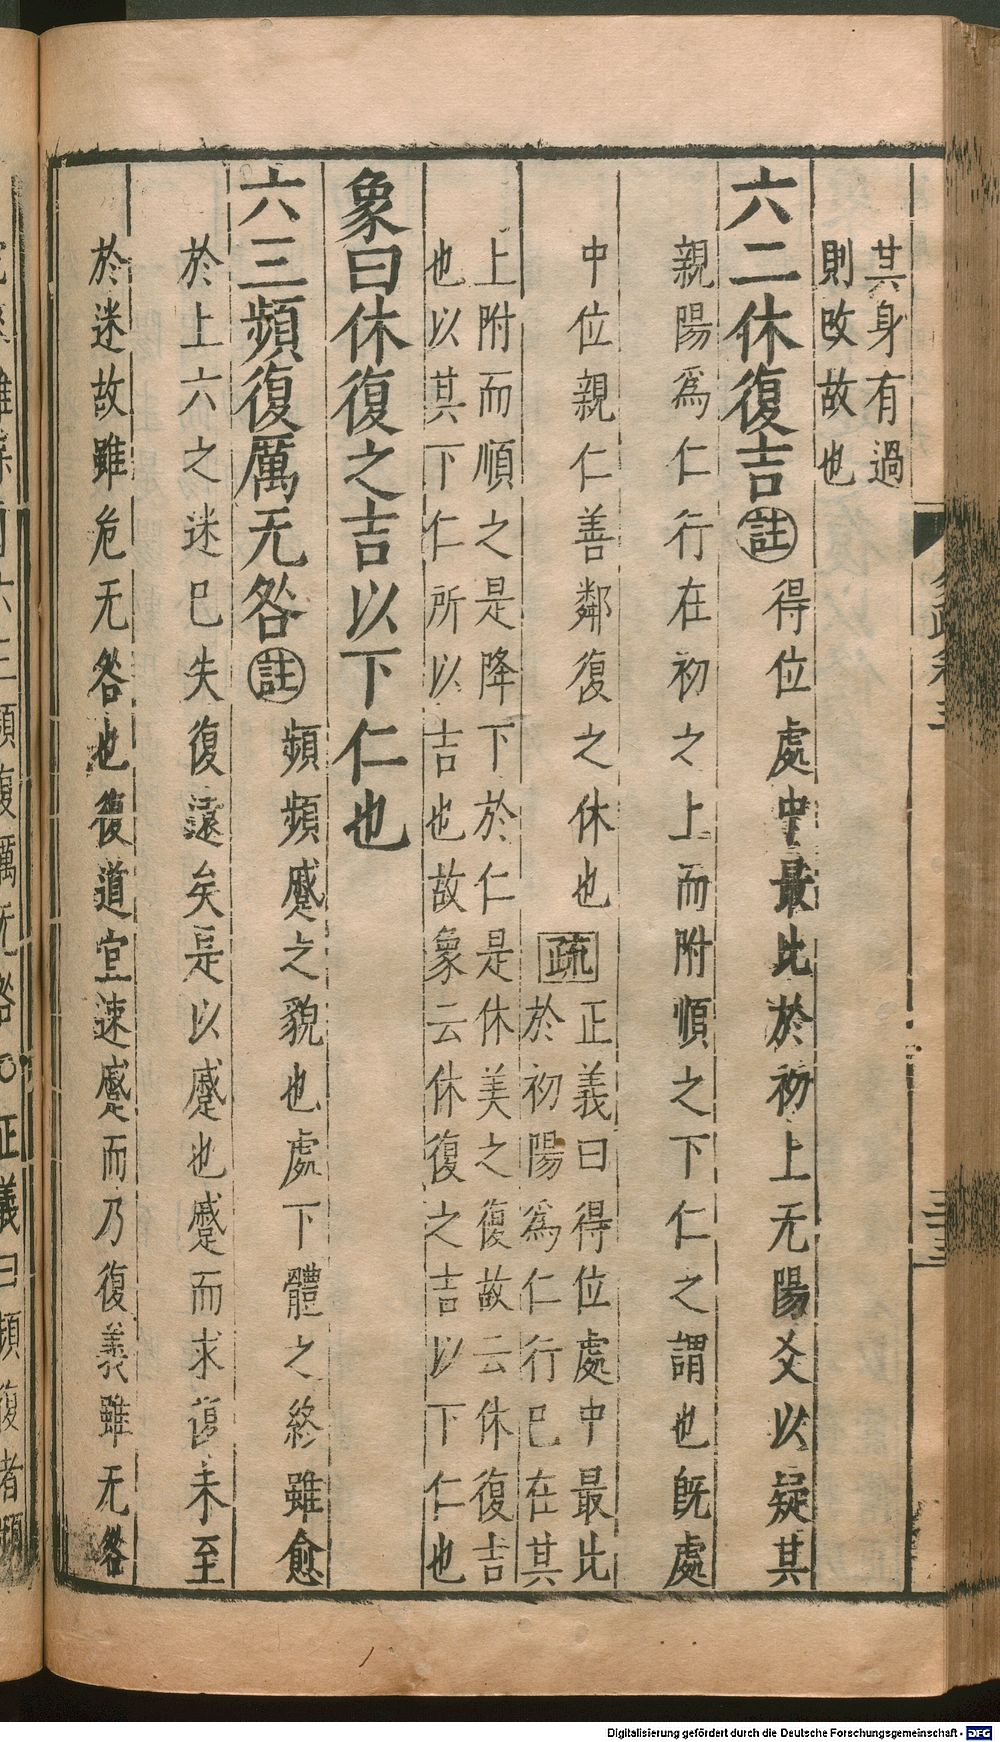 其身有過
則改故也
六二休復吉註得位處中最比於初上无陽爻以疑其
親陽爲仁行在初之上而附順之下仁之謂也旣處
中位親仁善鄰復之休也疏正義曰得位處中最比
於初陽爲仁行已在其
上附而順之是降下於仁是休美之復故云休復吉
也以其下仁所以吉也故象云休復之吉以下仁也
象曰休復之吉以下仁也
六三頻復厲无咎註頻頻蹙之貌也處下體之終雖愈
於上六之迷已失復遠矣是以蹙也蹙而求復未至
於迷故雖危无咎也復道宜速蹙而乃復義雖无咎
三十三
正義曰頻復者頻
Digitalisierung gefördert durch die Deutsche Forschungsgemeinschaft - DFG